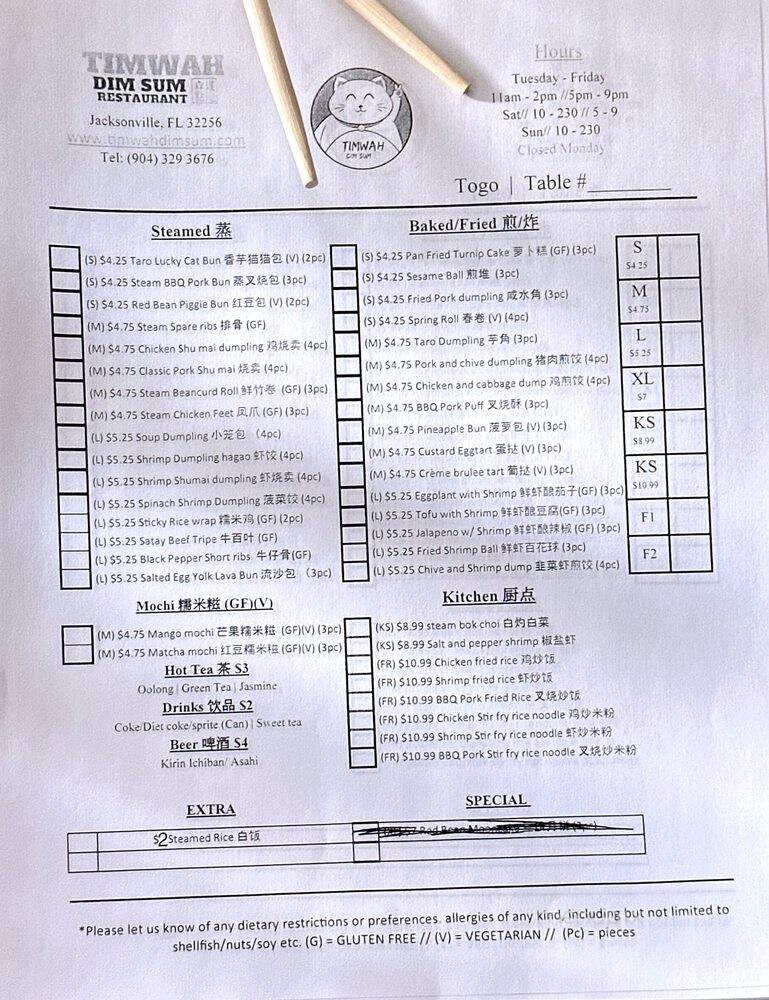 TIMWAH
DIM SUM
RESTAURANT
Jacksonville, FL 32256
www.timwahdimsum.com
Tel: (904) 329 3676
TIMWAH
DIM SUM
Hours
Tuesday - Friday
11am - 2pm //5pm - 9pm
Sat// 10 - 230 // 5 - 9
Sun// 10 - 230
Closed Monday
Togo | Table #________
Steamed 蒸
(S) $4.25 Taro Lucky Cat Bun 香芋猫猫包 (V) (2pc)
(S) $4.25 Steam BBQ Pork Bun 蒸叉烧包 (3pc)
(S) $4.25 Red Bean Piggie Bun 红豆包 (V) (2pc)
(M) $4.75 Steam Spare ribs 排骨 (GF)
(M) $4.75 Chicken Shu mai dumpling 鸡烧卖 (4pc)
(M) $4.75 Classic Pork Shu mai 烧卖 (4pc)
(M) $4.75 Steam Beancurd Roll 鲜竹卷 (GF) (3pc)
(M) $4.75 Steam Chicken Feet 凤爪 (GF) (3pc)
(L) $5.25 Soup Dumpling 小笼包 （4pc)
(L) $5.25 Shrimp Dumpling hagao 虾饺 (4pc)
(L) $5.25 Shrimp Shumai dumpling 虾烧卖 (4pc)
(L) $5.25 Spinach Shrimp Dumpling 菠菜饺 (4pc)
(L) $5.25 Sticky Rice wrap 糯米鸡 (GF) (2pc)
(L) $5.25 Satay Beef Tripe 牛百叶 (GF)
(L) $5.25 Black Pepper Short ribs 牛仔骨(GF)
(L) $5.25 Salted Egg Yolk Lava Bun 流沙包 （3pc)
Mochi 糯米糍 (GF)(V)
(M) $4.75 Mango mochi 芒果糯米糍 (GF)(V) (3pc)
(M) $4.75 Matcha mochi 红豆糯米糍 (GF)(V) (3pc)
Hot Tea 茶 $3
Oolong | Green Tea | Jasmine
Drinks 饮品 $2
Coke/Diet coke/sprite (Can) | Sweet tea
Beer 啤酒 $4
Kirin Ichiban/ Asahi
Baked/Fried 煎/炸
(S) $4.25 Pan Fried Turnip Cake 萝卜糕 (GF) (3pc)
(S) $4.25 Sesame Ball 煎堆 (3pc)
(S) $4.25 Fried Pork dumpling 咸水角 (3pc)
(S) $4.25 Spring Roll 春卷 (V) (4pc)
(M) $4.75 Taro Dumpling 芋角 (3pc)
(M) $4.75 Pork and chive dumpling 猪肉煎饺 (4pc)
(M) $4.75 Chicken and cabbage dump 鸡煎饺 (4pc)
(M) $4.75 BBQ Pork Puff 叉烧酥 (3pc)
(M) $4.75 Pineapple Bun 菠萝包 (V) (3pc)
(M) $4.75 Custard Eggtart 蛋挞 (V) (3pc)
(M) $4.75 Crème brulee tart 葡挞 (V) (3pc)
(L) $5.25 Eggplant with Shrimp 鲜虾酿茄子(GF) (3pc)
(L) $5.25 Tofu with Shrimp 鲜虾酿豆腐(GF) (3pc)
(L) $5.25 Jalapeno w/ Shrimp 鲜虾酿辣椒 (GF) (3pc)
(L) $5.25 Fried Shrimp Ball 鲜虾百花球 (3pc)
(L) $5.25 Chive and Shrimp dump 韭菜虾煎饺 (4pc)
S
$4.25
M
$4.75
L
$5.25
XL
$7
KS
$8.99
KS
$10.99
F1
F2
Kitchen 厨点
(KS) $8.99 steam bok choi 白灼白菜
(KS) $8.99 Salt and pepper shrimp 椒盐虾
(FR) $10.99 Chicken fried rice 鸡炒饭
(FR) $10.99 Shrimp fried rice 虾炒饭
(FR) $10.99 BBQ Pork Fried Rice 叉烧炒饭
(FR) $10.99 Chicken Stir fry rice noodle 鸡炒米粉
(FR) $10.99 Shrimp Stir fry rice noodle 虾炒米粉
(FR) $10.99 BBQ Pork Stir fry rice noodle 叉烧炒米粉
EXTRA
$2 Steamed Rice 白饭
SPECIAL
Red Bean
*Please let us know of any dietary restrictions or preferences. allergies of any kind, including but not limited to
shellfish/nuts/soy etc. (G) = GLUTEN FREE // (V) = VEGETARIAN // (Pc) = pieces